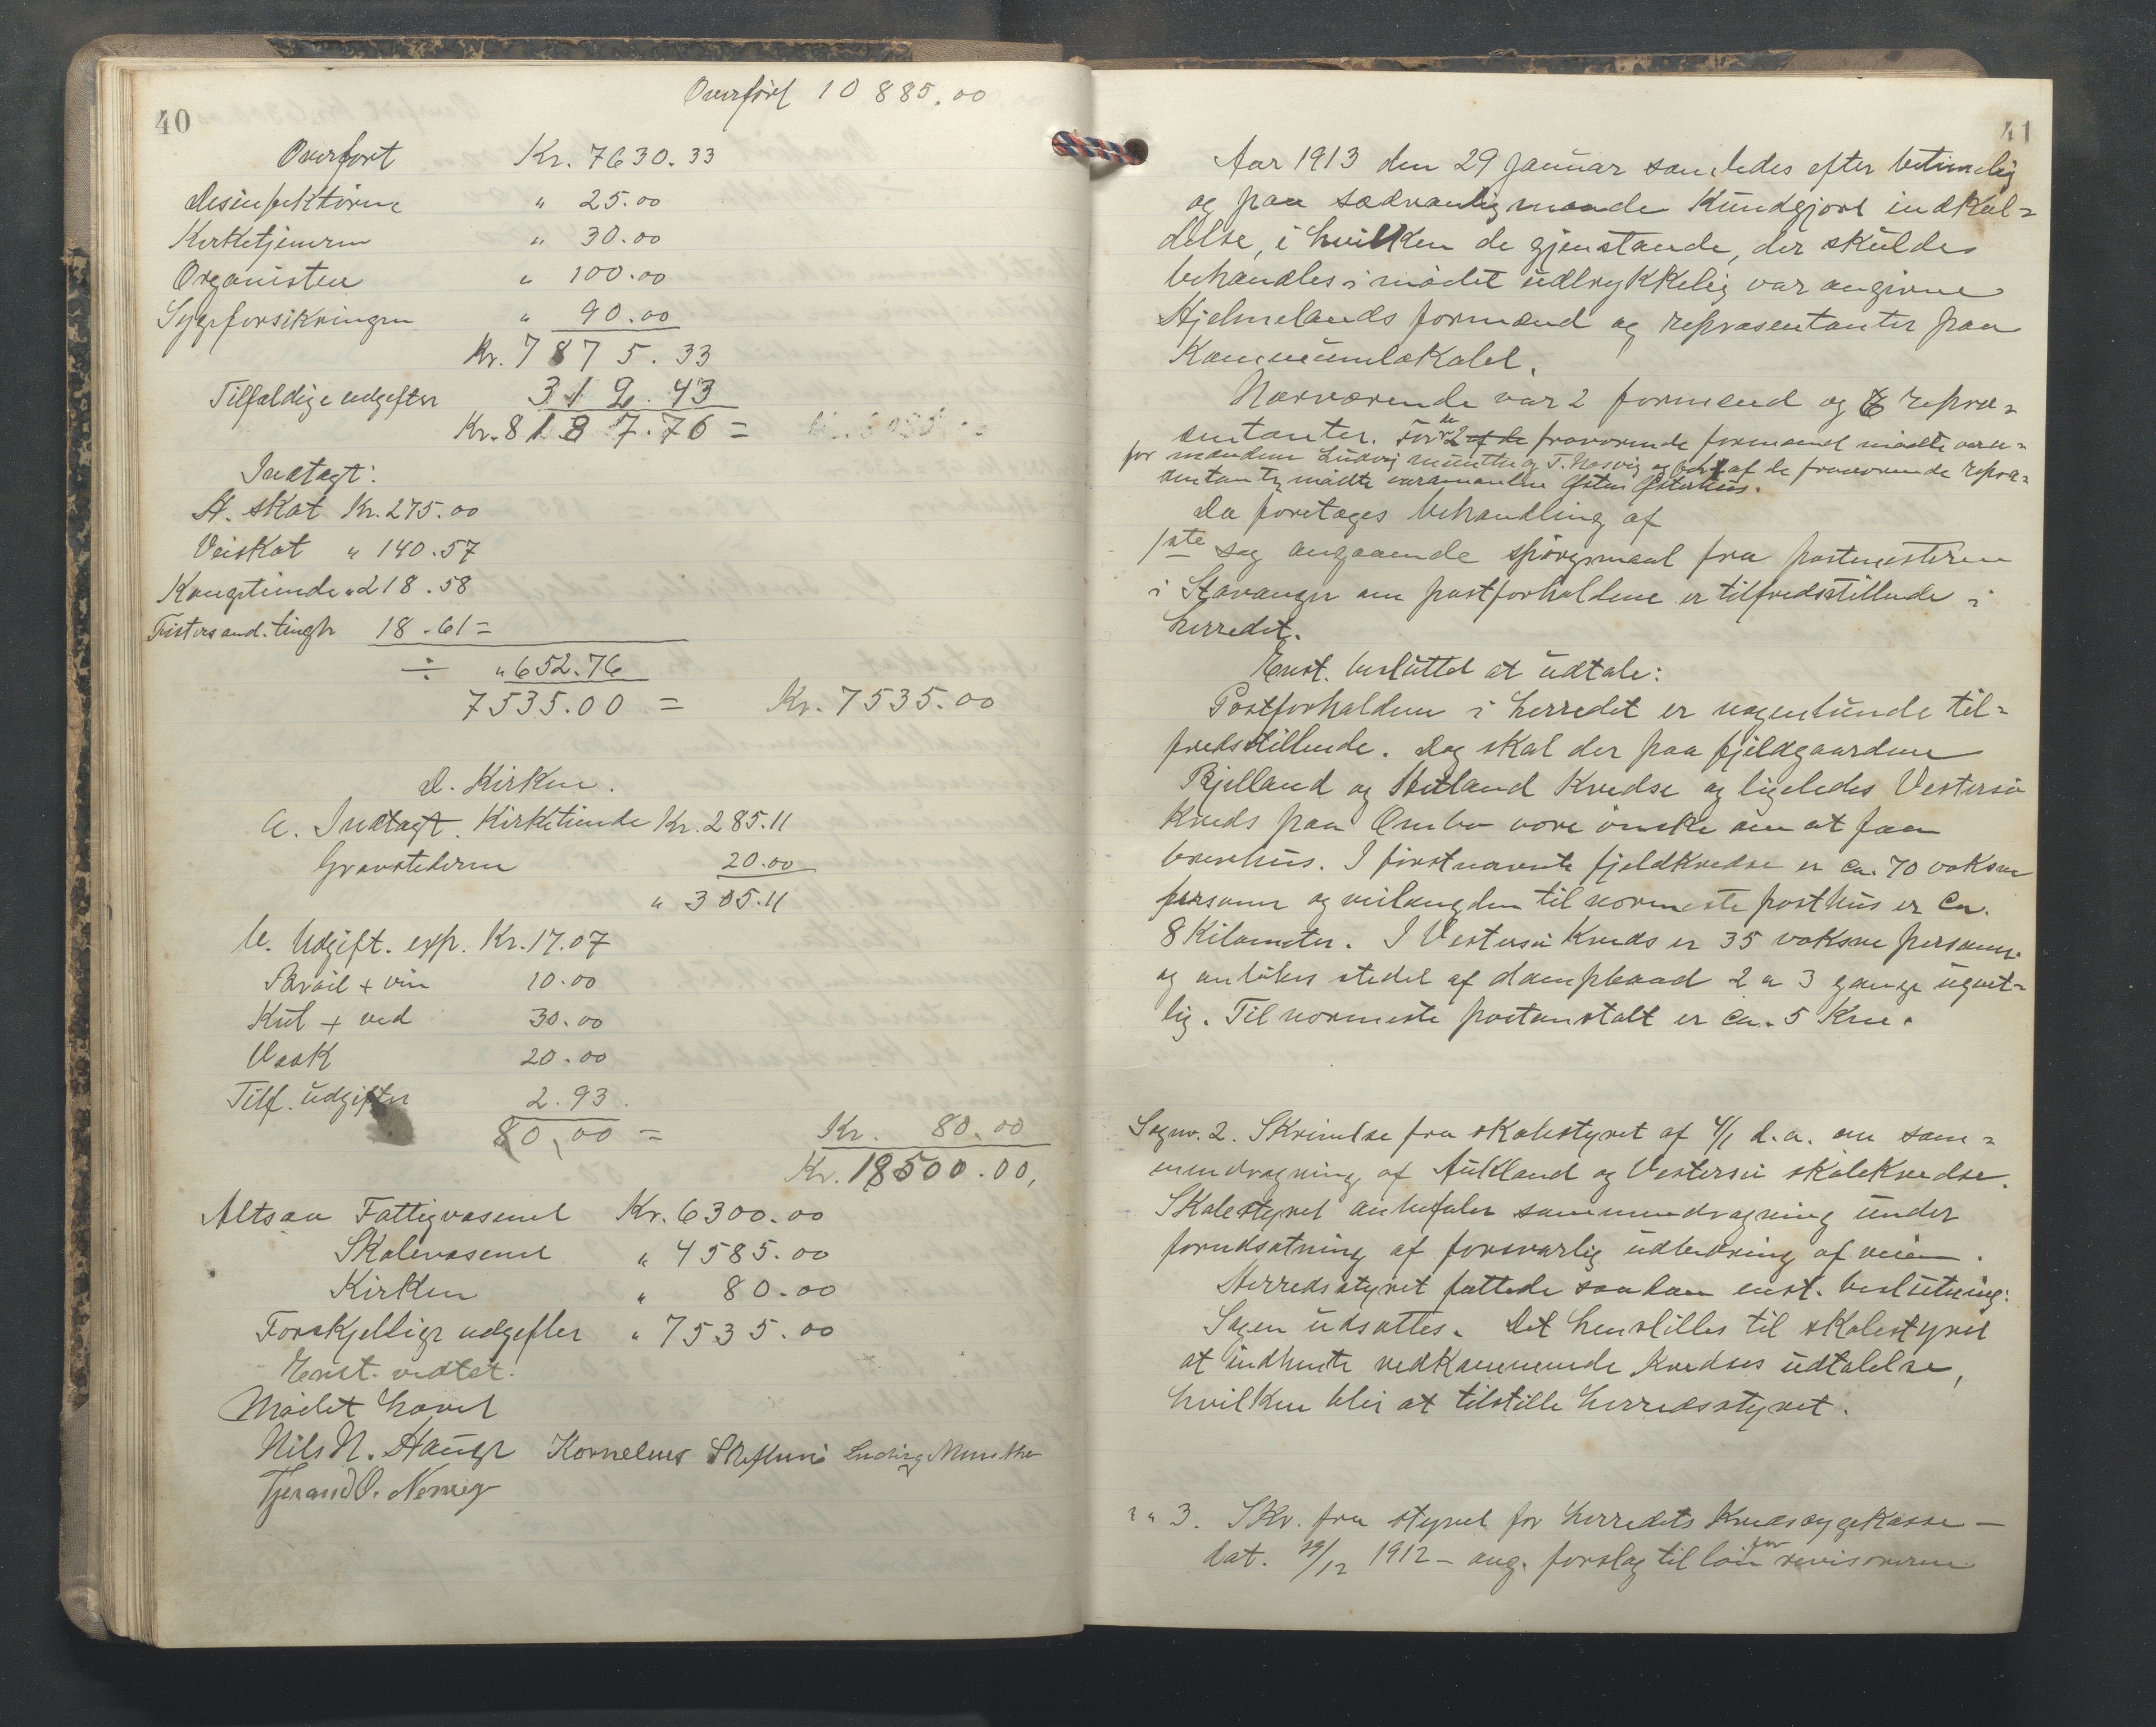 40
Overført 10 885.00
Overført Kr. 7630.33
Desinfektørene " 25.00
Kirketjeneren " 30.00
Organisten " 100.00
Sygeforsikringen " 90.00
Kr. 7875.33
Tilfældige udgifter 312.43
Kr. 8187.76 =
Indtægt:
A. skat Kr. 275.00
Veiskat " 140.57
Kongetiende " 218.58
18.61 =
÷ " 652.76
7535.00 = Kr. 7535.00
D. Kirken.
a. Indtægt. Kirketiende Kr. 285.11
Gravstederne 20.00
" 305.11
b. Udgift. exp. Kr. 17.07
Brød + vin 10.00
Kul + ved 30.00
Vask 20.00
Tilf. udgifter 2.93
80,00 = Kr. 80.00
Kr. 18500.00,
Altsaa Fattigvæsenet Kr. 6300.00
Skolevæsenet " 4585.00
Kirken " 80.00
Forskjellige udgifter " 7535.00
Enst. vedtat.
Mødet hævet
Nils N. Hauge Kornelius Ludvig Munthe
Tjerand O. Nesvig
41
Aar 1913 den 29 Januar samledes efter betimelig
og paa sædvanlig maade kundgjort indkal=
delse, i hvilken de gjenstande, der skulde
behandles i mødet udtrykkelig var angivne
Hjelmelands formænd og repræsentanter paa
Kommunelokalet.
Nærværende var 2 formænd og repræ=
sentanter. For de 2 af de fraværende formænd mødte vara=
for mændene Ludvig Munthe og T. Nesvig og for 1 af de fraværende repræ=
sentanter mødte varamanden Østen Østerhus.
Da foretages behandling af
1ste sag angaaende spørgsmaal fra postmesteren
i Stavanger om postforholdene er tilfredsstillende i
herredet.
Enst. besluttet at udtale:
Postforholdene i herredet er nogenlunde til=
fredsstillende. Dog skal der paa fjeldgaardene
Bjelland og Hetland Kredse og ligeledes Vestersø
Kreds paa Ombo være ønske om at faa
brevhus. I førstnævnte fjeldkredse er ca. 70 voksne
personer og veilængden til nærmeste posthus er ca.
8 Kilometer. I Vestersø Kreds er 35 voksne personer
og anløbes stedet af dampbaad 2 a 3 gange ugent=
lig. Til nærmeste postanstalt er ca. 5 Km.
Sag nr. 2. Skrivelse fra skolestyret af 4/1 d.a. om sam=
mendragning af Aukland og Vestersø skolekredse.
Skolestyret anbefaler sammendragning under
forudsætning af forsvarlig udbedring af veien.
Herredsstyret fattede saadan enst. beslutning:
Sagen udsættes. Det henstilles til skolestyret
at indhente vedkommende kredses udtalelse,
hvilken blir at tilstille herredsstyret.
" " 3. Skr. fra styret for herredets Kredssygekasse –
dat. 19/12 1912 – ang. forslag til løn for revisorerne